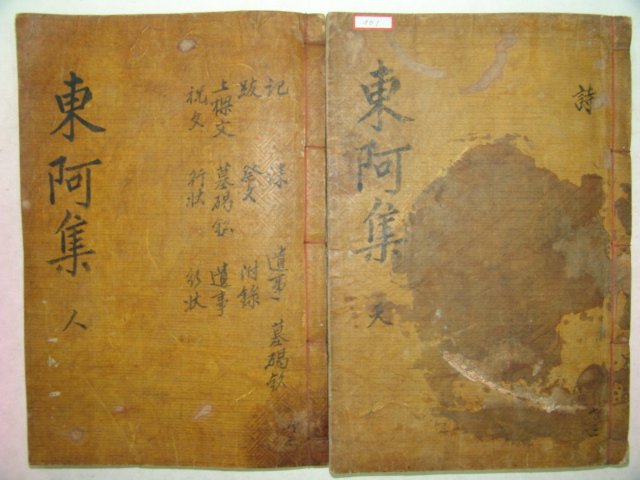 東阿集 人
記 遺事 墓碣銘
跋 祭文 附錄
上樑文 墓碣銘 遺事
祝文 行狀 行狀
東阿集 天
詩
共三